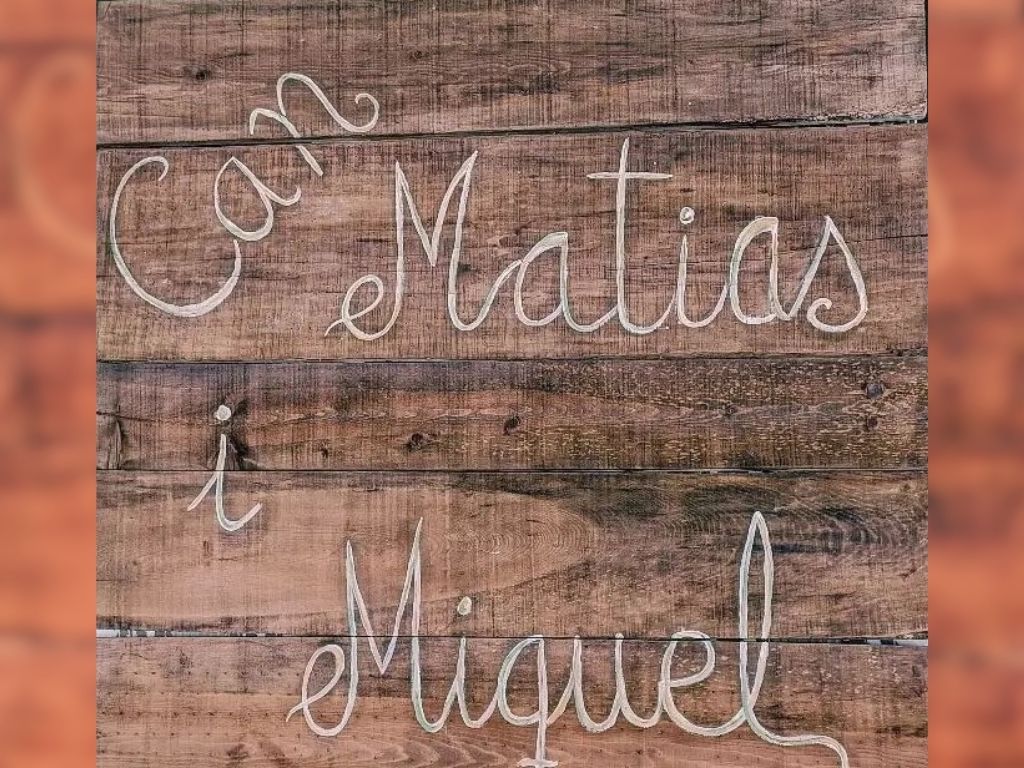 Can Matias
i
Miquel